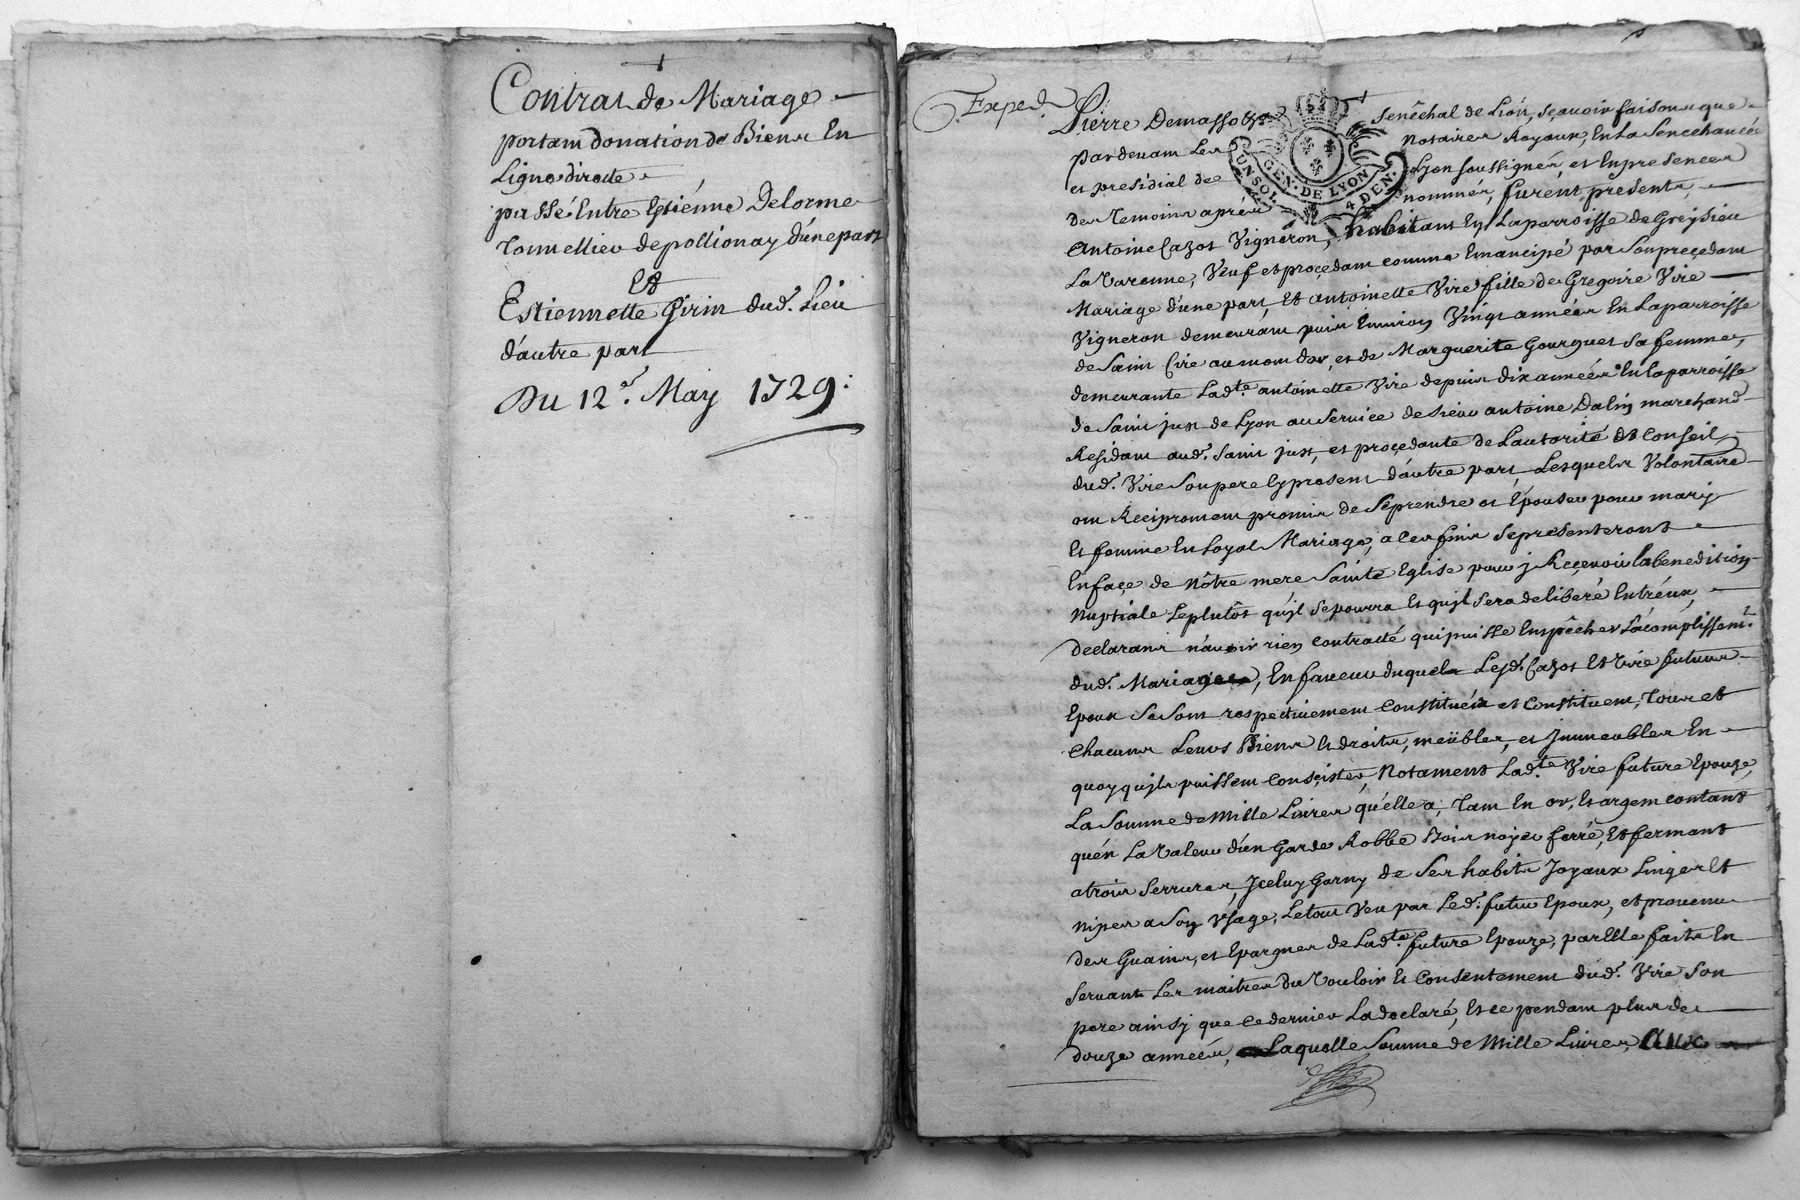 Contrat de Mariage
portant donation de Biens En
Ligne directe
passé Entre Estiénne Delorme
Tonnellier de pollionay d'une part
Et
Estiennette Girin dud. Lieu
d'autre part
Du 12e. May 1729:
Exped.
Pierre Demasso &c. Senêchal de Lion, sçavoir faisons que
pardevant Les Notaires Royaux, En La Senechaucée
et presidial de Lyon soussignés, et En presence
des Temoins aprés nommés, furent presents,
Antoine Cazot Vigneron, habitant En La parroisse de Greysieu
La Varenne, Veuf et procedant comme Emancipé par son precedant
Mariage d'une part, Et antoinette Vire fille de Gregoire Vire
Vigneron demeurant puis Environ Vingt années En La parroisse
de Saint Cire au mont d'or, et de Marguerite Gourguet sa femme,
demeurante Lad.te antoinette Vire depuis dix années En la parroisse
de Saint just de Lyon au Service de Sieur antoine Dalin marchand
Residant aud. Saint just, et procedante de L'autorité Et Conseil
dud. Vire son pere Cy present d'autre part, Lesquels Volontaire
ont Reciproment promis de Se prendre et Epouser pour mary
Et femme En Loyal Mariage, a ces fins Se presenteront
En façe de nôtre mere Sainte Eglise pour j Reçevoir la benedition
Nuptiale Le plutôt qu'jl Se pourra Et qu'jl Sera deliberé Entréux,
declarants n'avoir rien contracté qui puisse Empêcher L'acomplissemt.
dud. Mariage, En faveur duquel Lesd. Cazot Et Vire futurs
Epoux Se Sont respectivement Constitués et Constituent, Tous et
Chacuns Leurs Biens Et droits, meübles, et Jmmeubles En
quoy qu'jls puissent Consçister, Notament Lad.te Vire future Epouze,
La Somme de Mille Livres qu'elle a, Tant En or, Et argent contant
qu'en La Valeur d'un Garde Robbe Bois noyer ferré, Et fermant
a trois Serrures, Jceluy Garny de Ses habits Joyaux Linges Et
nipes a Son Vsage, Le tout Veu par Led. futur Epoux, et provenu
des Guains, et Epargnes de Lad.te future Epouze, par Elle faits En
Servant Les maitres du Vouloir Et Consentement dud. Vire Son
pere ainsj que ce dernier La declaré, Et ce pendant plus de
douze années, Laquelle Somme de Mille Livres, aux
GEN. DE LYON
UN SOL 4 DEN.